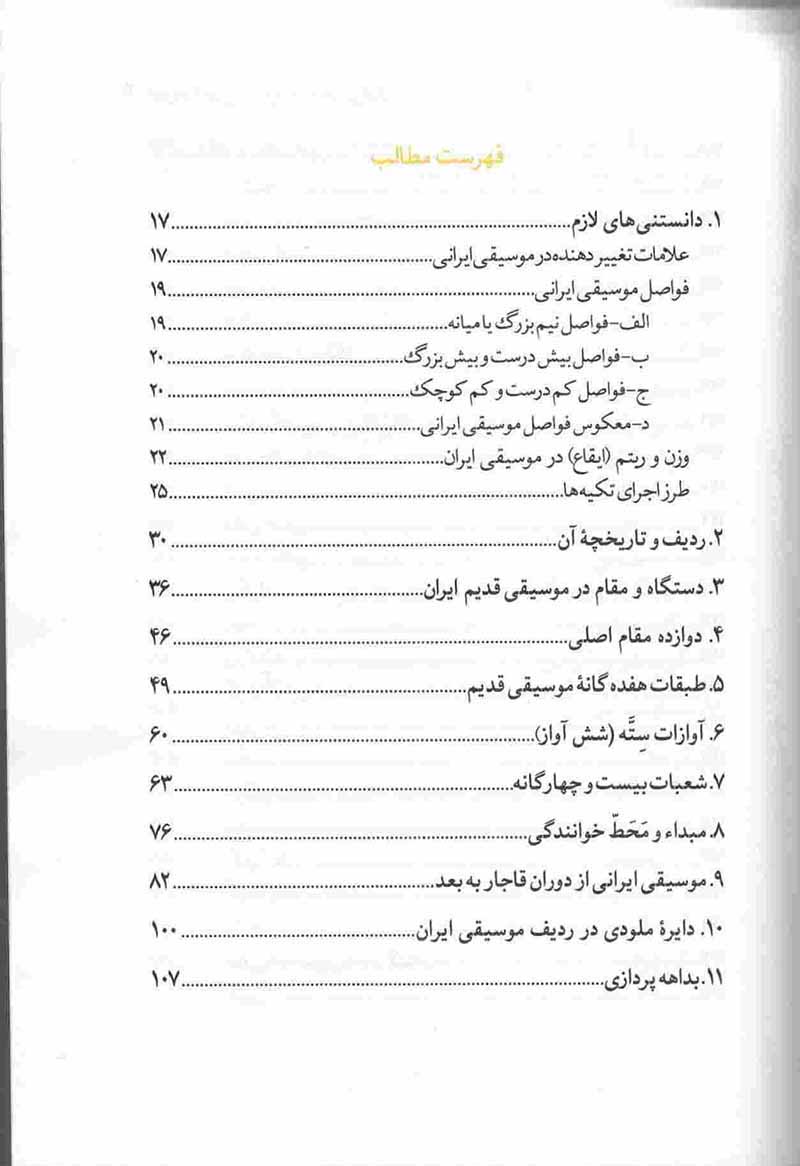 فهرست مطالب
۱. دانستنی‌های لازم......................................................................۱۷
علامات تغییر دهنده در موسیقی ایرانی..............................................۱۷
فواصل موسیقی ایرانی................................................................۱۹
الف-فواصل نیم بزرگ یا میانه..................................................۱۹
ب-فواصل بیش درست و بیش بزرگ..........................................۲۰
ج-فواصل کم درست و کم کوچک..........................................۲۰
د-معکوس فواصل موسیقی ایرانی............................................۲۱
وزن و ریتم (ایقاع) در موسیقی ایران................................................۲۲
طرز اجرای تکیه‌ها......................................................................۲۵
۲. ردیف و تاریخچۀ آن...................................................................۳۰
۳. دستگاه و مقام در موسیقی قدیم ایران............................................۳۶
۴. دوازده مقام اصلی.....................................................................۴۶
۵. طبقات هفده گانۀ موسیقی قدیم...................................................۴۹
۶. آوازات سِتَّه (شش آواز)...............................................................۶۰
۷. شعبات بیست و چهارگانه............................................................۶۳
۸. مبداء و مَحَطّ خوانندگی..............................................................۷۶
۹. موسیقی ایرانی از دوران قاجار به بعد.............................................۸۲
۱۰. دایرۀ ملودی در ردیف موسیقی ایران.........................................۱۰۰
۱۱. بداهه پردازی.......................................................................۱۰۷